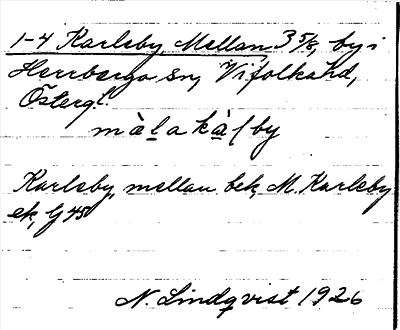 1-4 Karleby, Mellan, 3 5/8, by i
Herrberga sn, Vifolka hd,
Östergl.
màlakàlby
Karleby, mellan bek, M. Karleby
ek, G 45
N. Lindqvist 1926